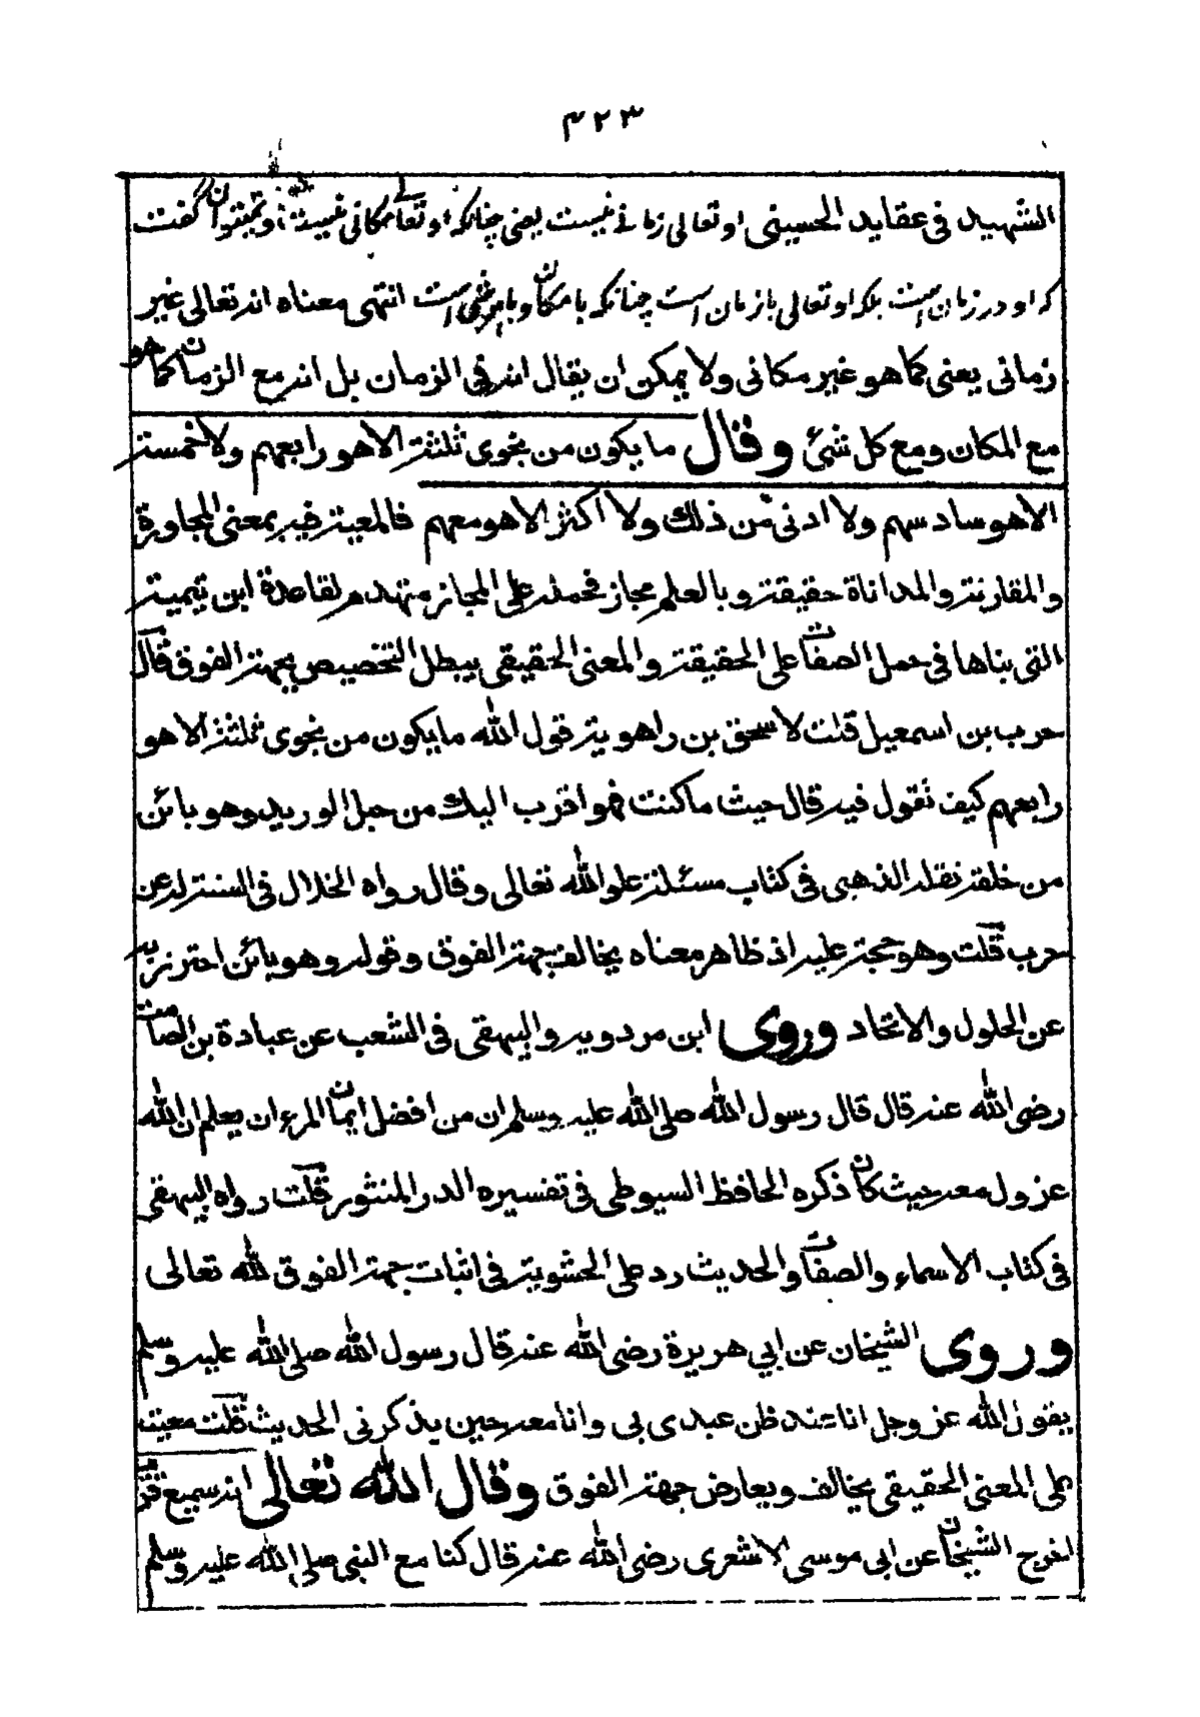 ٤٢٣
الشهيد فى عقايد الحسينى او تعالى زمانے نیست یعنی چنانکہ او تعالے مکانی نیست و نمیتوان گفت
کہ او در زمان است بلکہ او تعالی بازمان است چنانکہ بامکان و باهر شی است انتهى معناه انه تعالى غير
زمانى يعنى كما هو غير مكانى ولا يمكن ان يقال انه فى الزمان بل انه مع الزمان كما هو
مع المكان ومع كل شئ وقال ما يكون من نجوى ثلثة الا هو رابعهم ولا خمسة
الا هو سادسهم ولا ادنى من ذلك ولا اكثر الا هو معهم فالمعية فيه بمعنى المجاورة
والمقارنة والمداناة حقيقة وبالعلم مجاز فحمله على المجاز منهدم لقاعدة ابن تيمية
التى بناها فى حمل الصفات على الحقيقة والمعنى الحقيقى يبطل التخصيص بجهة الفوق قال
حرب بن اسمعيل قلت لاسحق بن راهويه قول الله ما يكون من نجوى ثلثة الا هو
رابعهم كيف نقول فيه قال حيث ما كنت فهو اقرب اليك من حبل الوريد وهو بائن
من خلقه نقله الذهبى فى كتاب مسئلة علو الله تعالى وقال رواه الخلال فى السنة له عن
حرب قلت وهو حجة عليه اذ ظاهر معناه يخالف جهة الفوق وقوله وهو بائن احترز به
عن الحلول والاتحاد وروى ابن مردويه والبيهقى فى الشعب عن عبادة بن الصامت
رضى الله عنه قال قال رسول الله صلى الله عليه وسلم ان من افضل ايمان المرء ان يعلم ان الله
عز ول معه حيث كان ذكره الحافظ السيوطى فى تفسيره الدر المنثور قلت رواه البيهقى
فى كتاب الاسماء والصفات والحديث رد على الحشوية فى اثبات جهة الفوق لله تعالى
وروى الشيخان عن ابي هريرة رضى الله عنه قال رسول الله صلى الله عليه وسلم
يقول الله عز وجل انا عند ظن عبدى بى وانا معه حين يذكرنى الحديث قلت معيته
على المعنى الحقيقى يخالف ويعارض جهة الفوق وقال الله تعالى انه سميع قريب
اخرج الشيخان عن ابى موسى الاشعرى رضى الله عنه قال كنا مع النبى صلى الله عليه وسلم